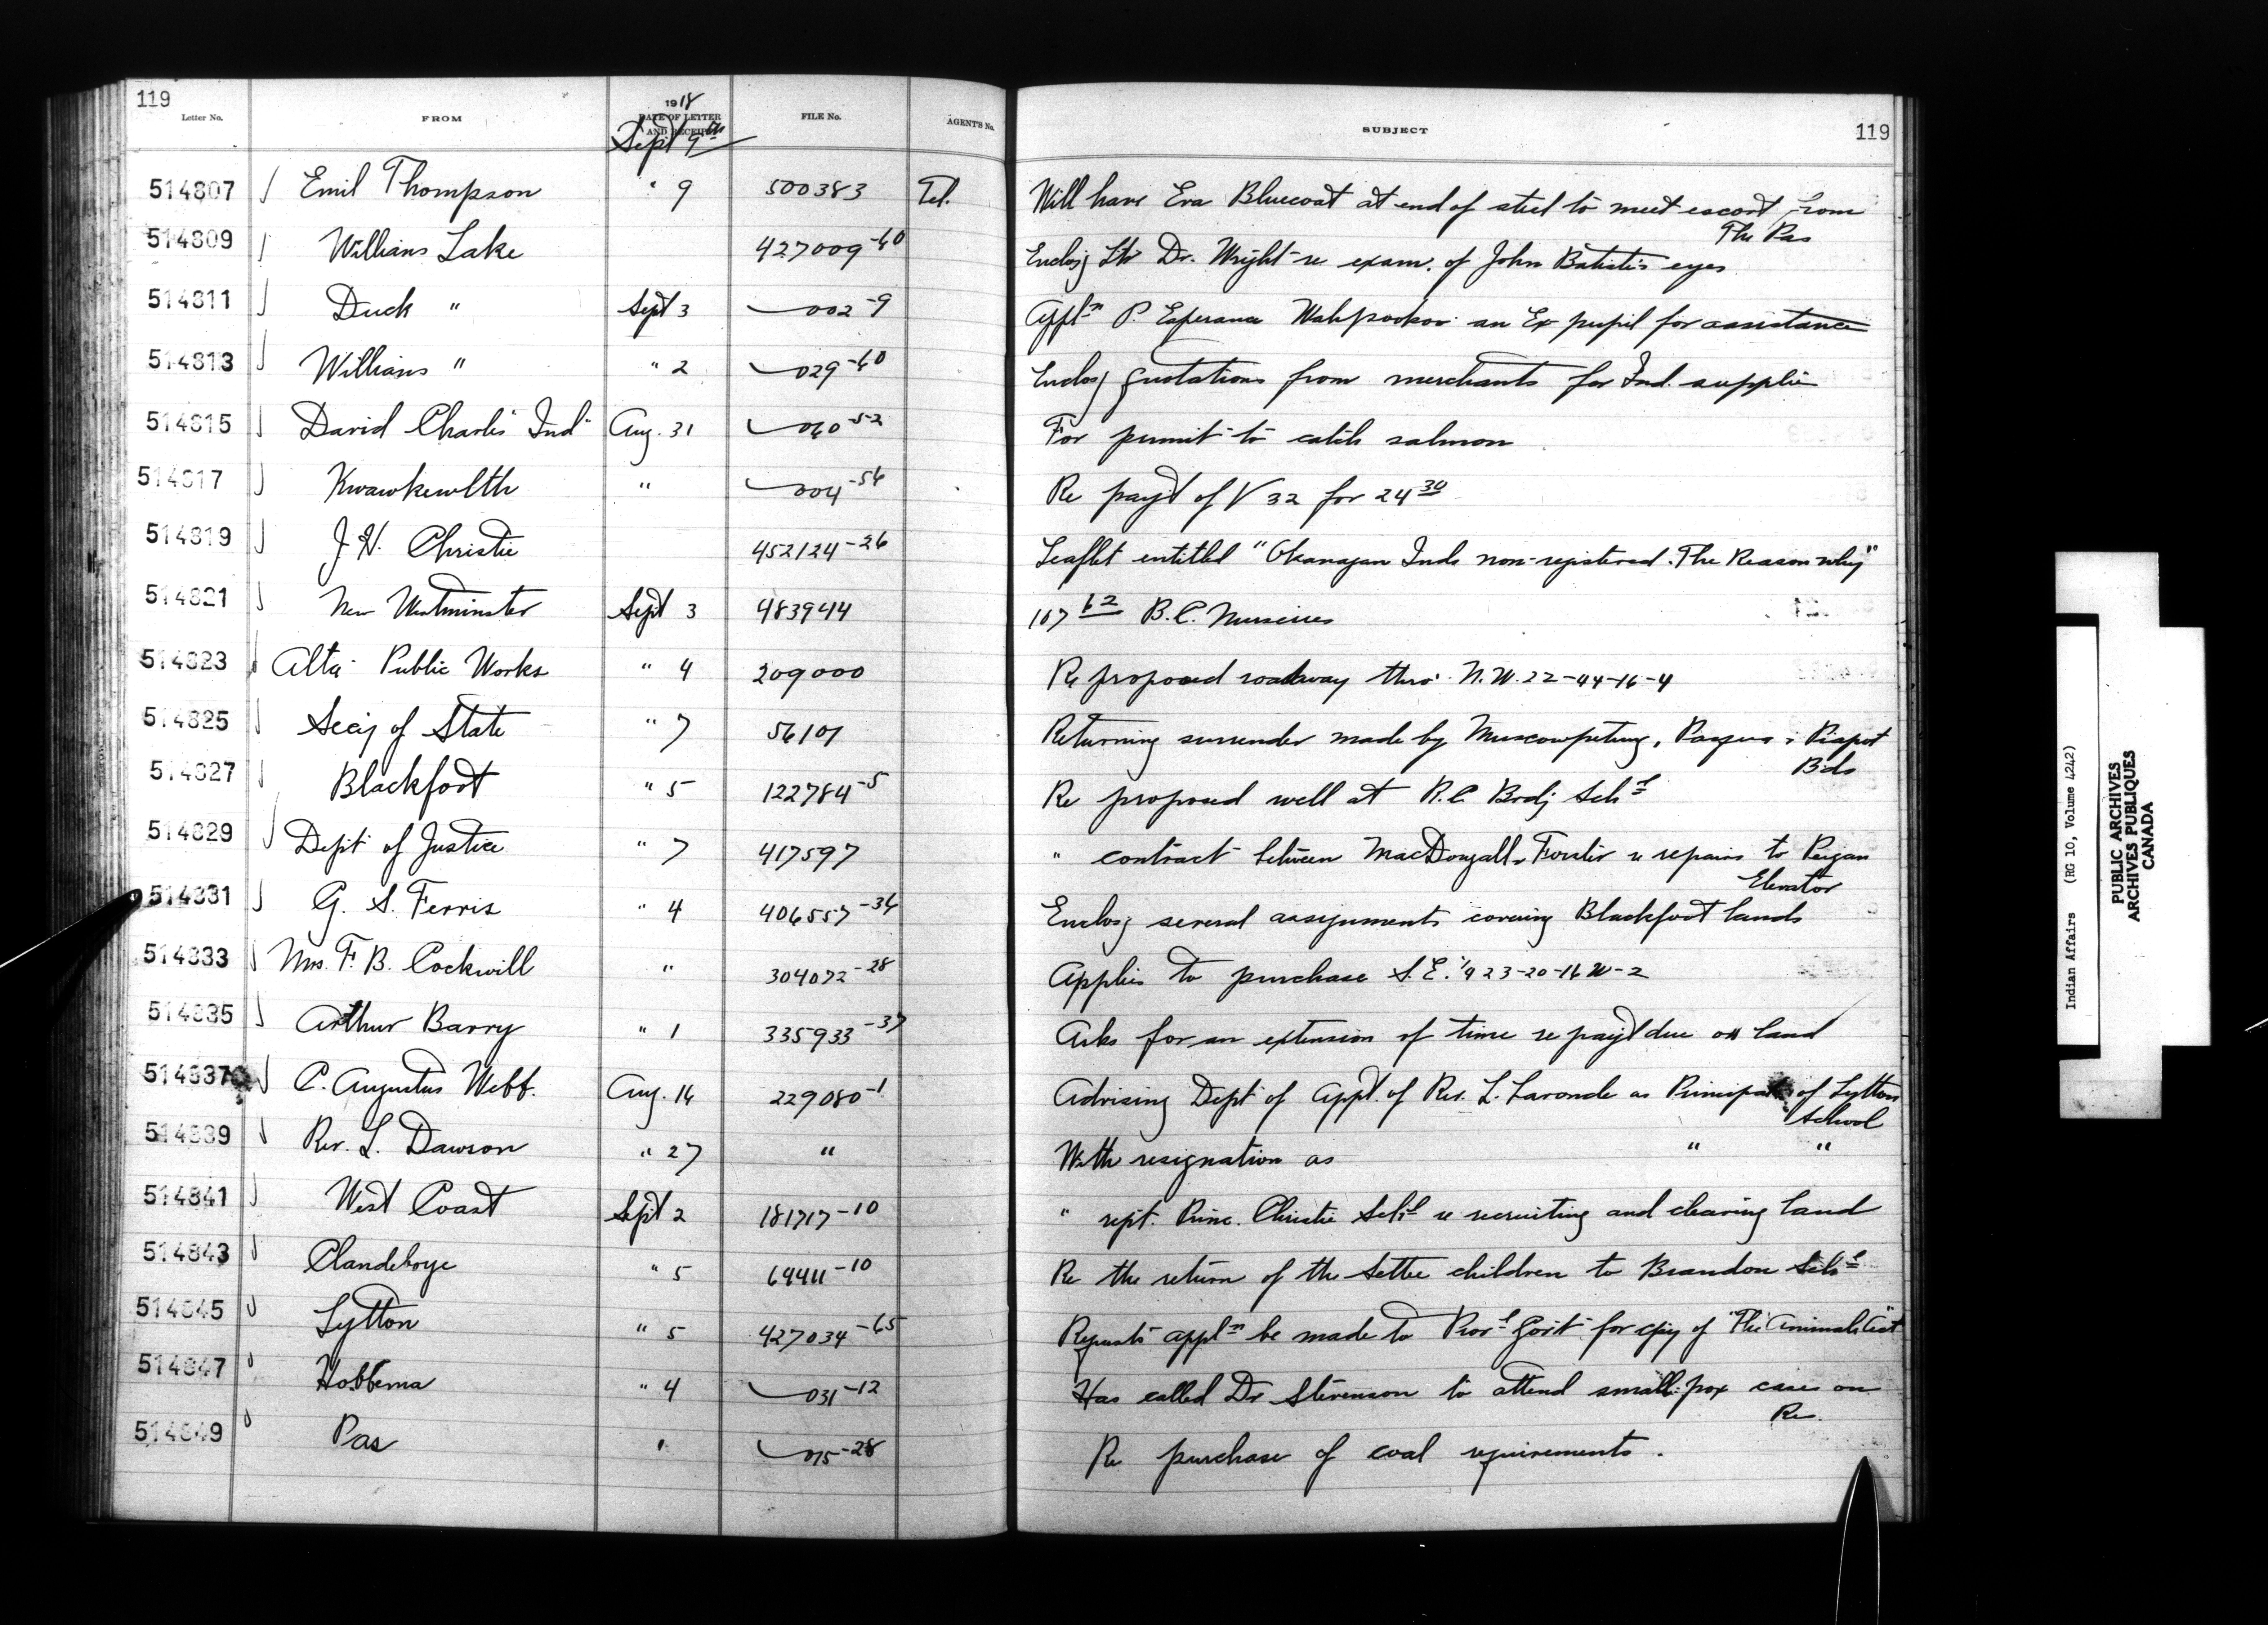 119
Letter No. FROM 1918 DATE OF LETTER AND RECEIPT FILE No. AGENT'S No. SUBJECT 119
Sept 9th
514807 Emil Thompson " 9 500383 Tel. Will have Eva Bluecoat at end of steel to meet escort from
The Pas
514809 Williams Lake 427009-60 Enclosg Ltr Dr. Wright re exam. of John Batiste's eyes
514811 Duck " Sept 3 002-9 Appln P. Esperance an Ex pupil for assistance
514813 Williams " " 2 029-60 Enclosg quotations from merchants for Ind. supplies
514815 David Charlis Ind Aug. 31 060-52 For permit to catch salmon
514817 Kwawkewlth " 004-56 Re payt of V 32 for 24 30
514819 J. H. Christie 452124-26 Leaflet entitled "Okanagan Inds non-registered. The Reason why"
514821 New Westminster Sept 3 483944 107 62 B.C. Nurseries
514823 Alta Public Works " 4 209000 Re proposed roadway thro' N.W. 22-44-16-4
514825 Secy of State " 7 56101 Returning surrender made by Muscowpetung, Pasqua & Piapot
Bds
514827 Blackfoot " 5 122784-5 Re proposed well at R.C Brdg Schl
514829 Dept of Justice " 7 417597 " contract between MacDougall & Forster re repairs to Peigan
Elevator
514831 G. S. Ferris " 4 406557-36 Enclosg several assignments covering Blackfoot lands
514833 Mrs. F. B. Cockwill " 304072-28 Applies to purchase S.E. 1/4 23-20-16 W-2
514835 Arthur Barry " 1 335933-37 Asks for an extension of time re payt due on land
514837 C. Augustus Webb. Aug. 16 229080-1 Advising Dept of appt. of Rev. L. Laronde as Principal of Lytton
School
514839 Rev. L. Dawson " 27 " With resignation as " "
514841 West Coast Sept 2 181717-10 " rept. Princ. Christie Schl re recruiting and clearing land
514843 Clandeboye " 5 64411-10 Re the return of the Settee children to Brandon Schl
514845 Lytton " 5 427034-65 Requests appln be made to Provl Govt for cpy of "The Animals Act"
514847 Hobbema " 4 031-12 Has called Dr Stevenson to attend small-pox cases on
Re.
514849 Pas " 015-28 Re purchase of coal requirements.
Indian Affairs (RG 10, Volume 4242)
PUBLIC ARCHIVES
ARCHIVES PUBLIQUES
CANADA